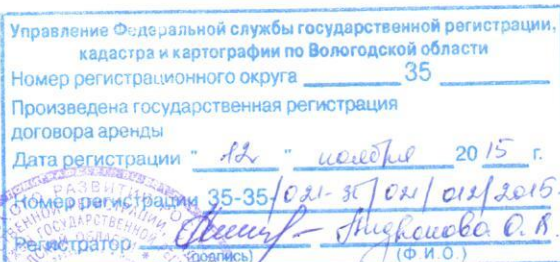 Управление Федеральной службы государственной регистрации,
кадастра и картографии по Вологодской области
Номер регистрационного округа 35
Произведена государственная регистрация
договора аренды
Дата регистрации " 12 " ноября 20 15 г.
Номер регистрации 35-35/021-35/021/012/2015
Регистратор Андронова О. Н.
(подпись) (Ф.И.О.)